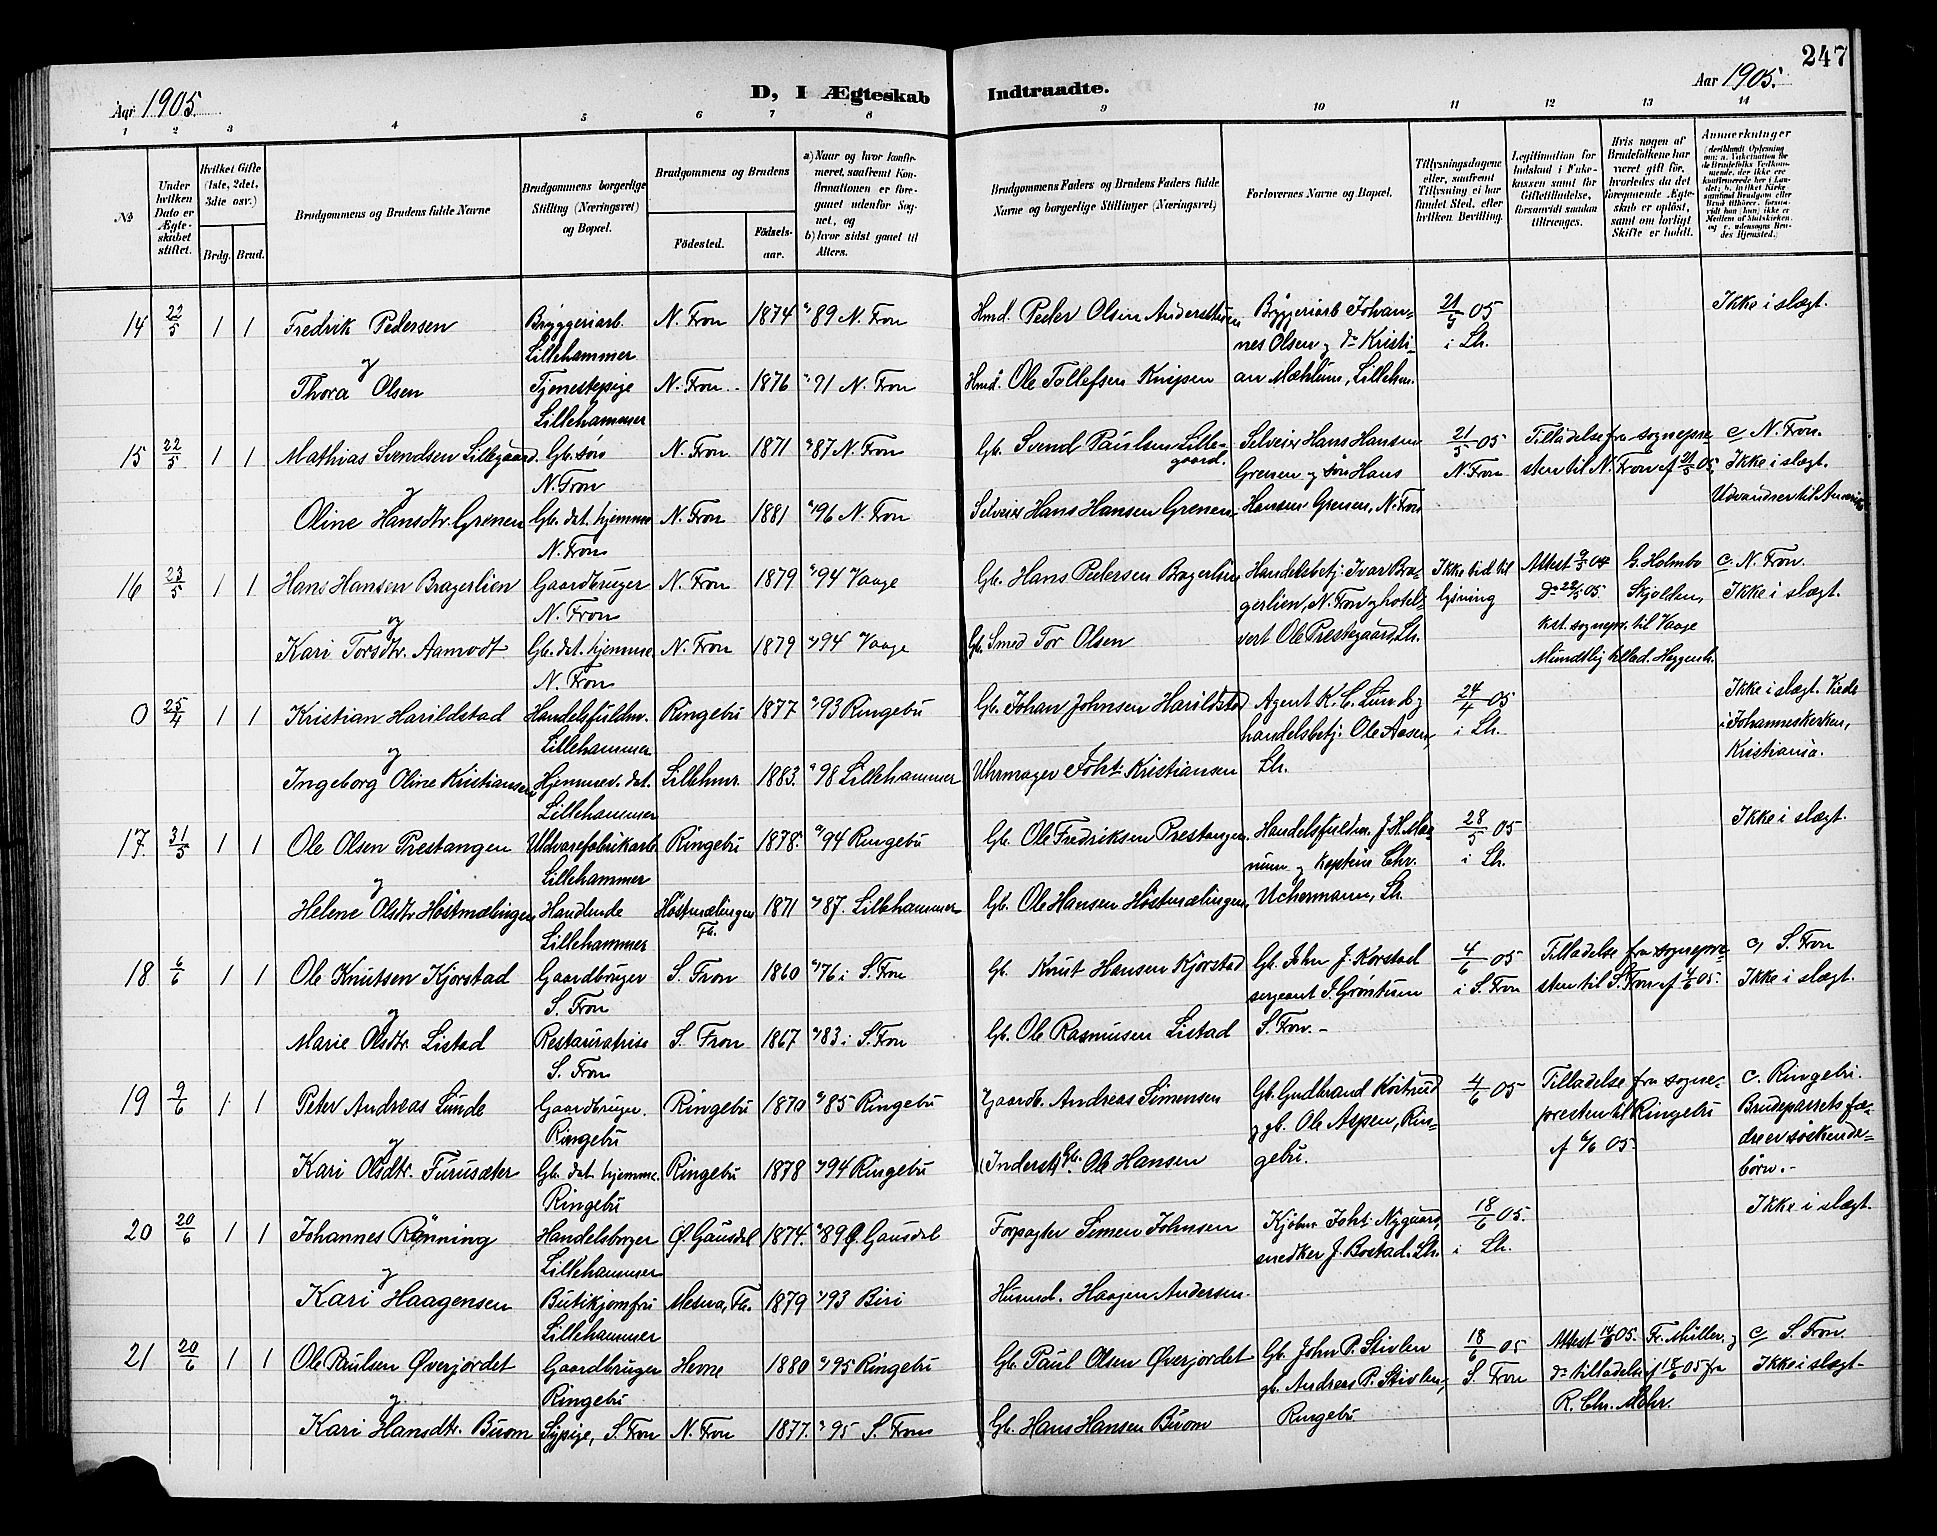 247
Aar 1905. D, I Ægteskab Indtraadte. Aar 1905.
1 2 3 4 5 6 7 8 9 10 11 12 13 14
No
Under hvilken Dato er Ægteskabet stiftet.
Hvilket Gifte (1ste, 2det, 3die osv.)
Brdg. Brud.
Brudgommens og Brudens fulde Navne
Brudgommens borgerlige Stilling (Næringsvei) og Bopæl.
Brudgommens og Brudens
Födested. Födsels-aar.
a) Naar og hvor konfirmeret, saafremt Konfirmationen er foregaaet udenfor Sognet, og
b) hvor sidst gaaet til Alters.
Brudgommens Faders og Brudens Faders fulde Navne og borgerlige Stillinger (Næringsvei)
Forlovernes Navne og Bopæl.
Tillysningsdagene eller, saafremt Tillysning ei har fundet Sted, efter hvilken Bevilling.
Legitimation for Indskud i Enkekassen samt for Giftetilladelse, forsaavidt saadan tiltrænges.
Hvis nogen af Brudefolkene har været gift för, hvorledes da det foregaaende Ægteskab er oplöst, samt om lovligt Skifte er holdt.
Anmerkninger
14 22/5 1 1 Fredrik Pedersen Bryggeriarb. Lillehammer N. Fron 1874 89 N. Fron Hmd. Peder Olsen Bryggeriarb Johan- 21/5 05 Ikke i slægt.
og nes Olsen og do Kristi- i Lh.
Thora Olsen Tjenestepige Lillehammer N. Fron 1876 91 N. Fron Hmd. Ole Tollefsen Knipen an Mæhlum, Lillehm.
15 22/5 1 1 Mathias Svendsen Lillegaard. Gb. søn N. Fron N. Fron 1871 87 N. Fron Gb. Svend Paulsen Lille-gaard. Selveier Hans Hansen 21/5 05 Tilladelse fra sognepre- c N. Fron.
og Grenen og søn Hans N. Fron sten til N. Fron af 21/5 05. Ikke i slægt.
Oline Hansdtr. Grenen Gb. dat. hjemme N. Fron N. Fron 1881 96 N. Fron Selveier Hans Hansen Grenen Hansen Grenen, N. Fron Udvandrer til Amerika
16 23/5 1 1 Hans Hansen Bragerlien Gaardbruger N. Fron N. Fron 1879 94 Vaage Gb. Hans Pedersen Bragerlien Handelsbetj. Ivar Bra- Ikke tid til Attest 9/5 04 G. Holmbo c. N. Fron.
og gerlien, N. Fron og hotel- lysning Do 22/5 05 Skjolden, Ikke i slægt.
Kari Torsdtr. Aamodt Gb. dat. hjemme N. Fron N. Fron 1879 94 Vaage Gb. Smed Tor Olsen vert Ole Prestegaard, Lh. kst. sognepr. til Vaage
Mundtlig tillad.
0 25/4 1 1 Kristian Harildstad Handelsfuldm. Lillehammer Ringebu 1877 93 Ringebu Gb. Johan Johnsen Harildstad Agent K. C. Lund og 24/4 05 Ikke i slægt.
og handelsbetj. Ole Aasen, i Lh. i Johanneskirken,
Ingeborg Oline Kristiansen Hjemmev. dat. Lillehammer Lillehmr. 1883. 98 Lillehammer Uhrmager Joh: Kristiansen Lh. Kristiania.
17. 31/5 1 1 Ole Olsen Prestangen Uldvarefabrikarb Lillehammer Ringebu 1878. 94 Ringebu Gb. Ole Fredriksen Prestangen. Handelsfuldm. J. H. 28/5 05 Ikke i slægt.
og og Chr. i Lh.
Helene Olsdtr Höstmælingen Handlende Lillehammer Höstmælingen Fb. 1871 87. Lillehammer Gb. Ole Hansen Höstmælingen, Uchermann, Lh.
18 6/6 1 1 Ole Knutsen Kjorstad Gaardbruger S. Fron S. Fron 1860 76 i S. Fron Gb. Knut Hansen Kjorstad Gb. John J. Korstad 4/6 05 Tilladelse fra sognepre- c) S. Fron
og sergeant J. Grøntuen i S. Fron sten til S. Fron af 4/6 05. Ikke i slægt.
Marie Olsdtr. Listad Restauratrise S. Fron S. Fron 1867 83 i S. Fron Gb. Ole Rasmusen Listad S. Fron.
19 9/6 1 1 Peter Andreas Lunde Gaardbruger. Ringebu Ringebu 1870 85 Ringebu Gaardb. Andreas Simensen Gb. Gudbrand Köstrud 4/6 05 Tilladelse fra sogne- c. Ringebu.
og og gb. Ole Aspen, Rin- presten til Ringebu Brudeparrets fæ-
Kari Olsdtr. Furusæter Gb. dat. hjemme. Ringebu Ringebu 1878 94 Ringebu (Inderst) Gb. Ole Hansen gebu. af 4/6 05. dre er söskende-
börn.
20 20/6 1 1 Johannes Rönning Handelsborger Lillehammer Ø. Gausdal 1874. 89 Ø. Gausdal Forpagter Simen Johnsen Kjöbm. Joh: Nygaard, 18/6 05. Ikke i slægt.
og snedker J. Bostad. Lh. i Lh.
Kari Haagensen Butikjomfru Lillehammer Mesna, Fb. 1879 93 Biri Husmd. Haagen Andersen.
21 20/6 1 1 Ole Paulsen Øverjordet Gaardbruger Ringebu Hevne 1880 95 Ringebu Gb. Paul Olsen Øverjordet Gb. John P. Stivlen 18/6 05 Attest 14/6 05. Fr. Müller. og c) S. Fron.
og gb. Andreas P. Stivlen, S. Fron do tilladelse af 18/6 05 fra Ikke i slægt.
Kari Hansdtr. Buom Sypige, S. Fron N. Fron 1877. 95 S. Fron Gb. Hans Hansen Buom Ringebu R. Chr. Mohr.